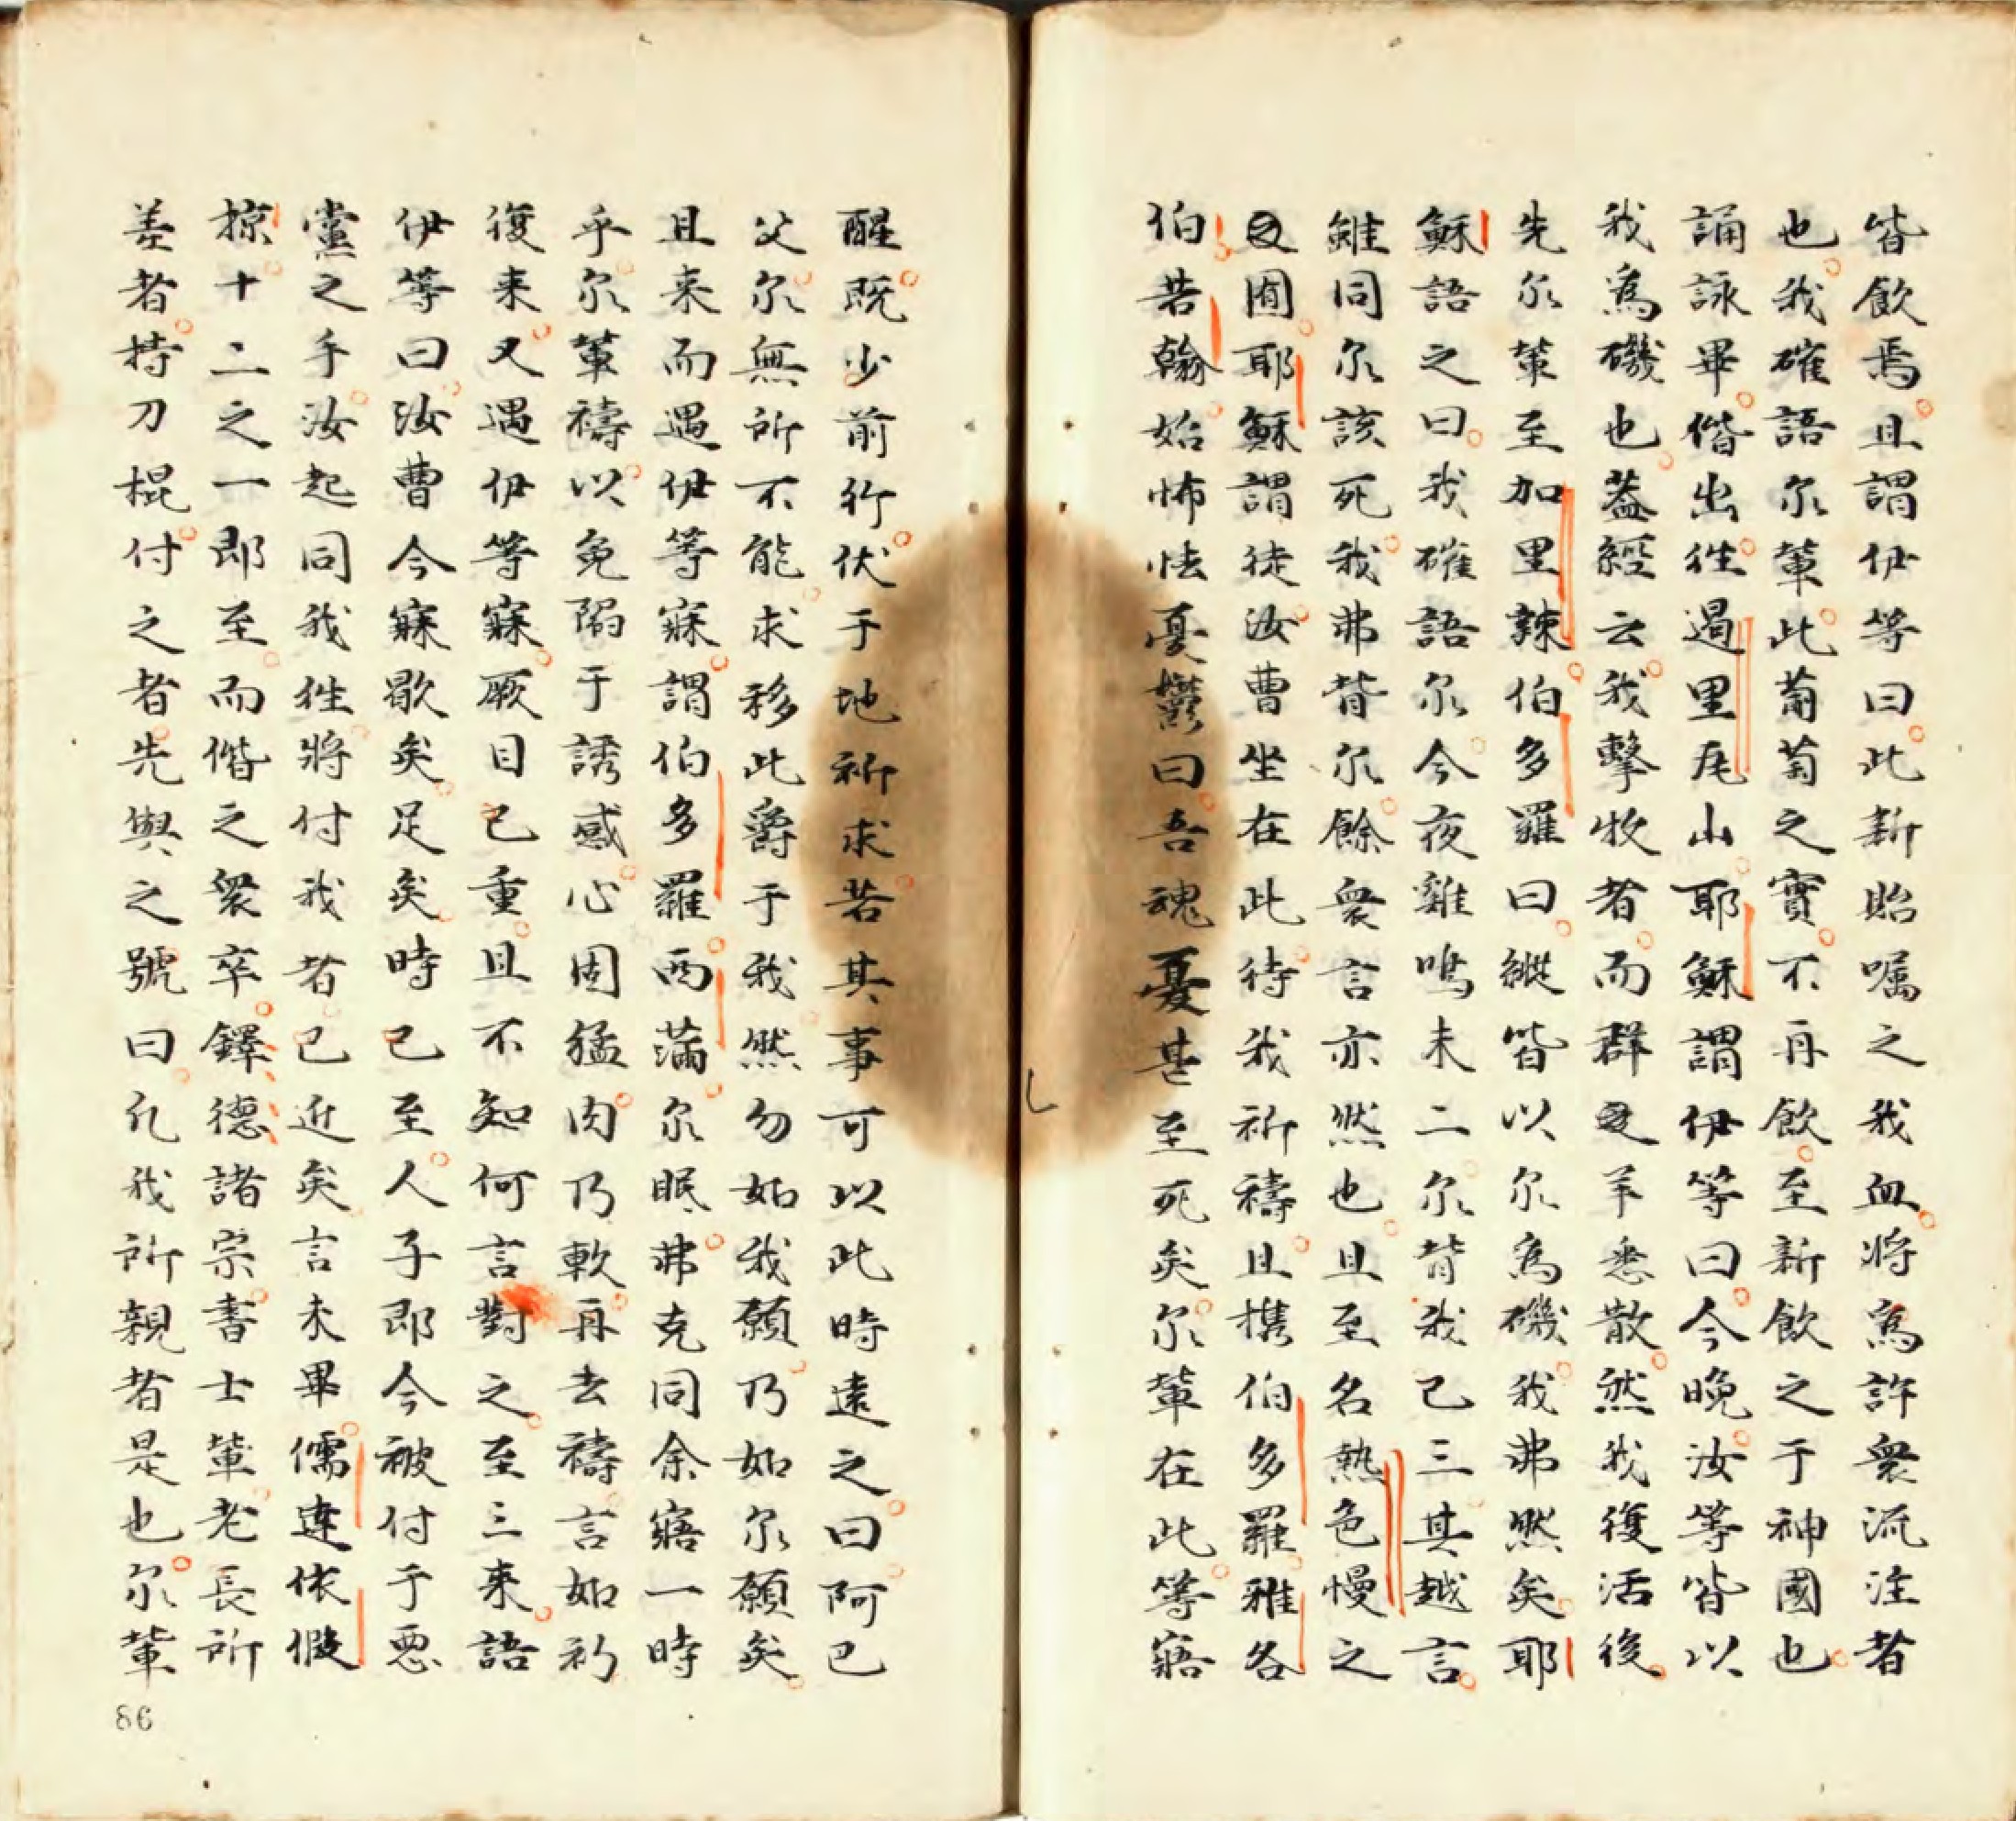 皆飲焉且謂伊等曰此新貽囑之我血將爲許衆流注者
也我確語尔軰此葡萄之實不再飲至新飲之于神國也
誦詠畢偕出徃過里尼山耶穌謂伊等曰今晚汝等皆以
我爲磯也葢經云我擊牧者而群之羊悉散然我復活後
先尔軰至加里辣伯多羅曰縱皆以尔爲磯我弗然矣耶
穌語之曰我確語尔今夜雞鳴未二尔背我已三其越言
雖同尔該死我弗背尔餘衆言亦然也且至名熱色慢之
囿耶穌謂徒汝曹坐在此待我祈禱且攜伯多羅雅各
伯若翰始怖怯憂鬱曰吾魂憂甚至死矣尔軰在此等寤
醒既少前行伏于地祈求若其事可以此時遠之曰阿巴
父尔無所不能求移此爵于我然勿如我願乃如尔願矣
且来而遇伊等寐謂伯多羅西滿尔眠弗克同余寤一時
乎尔軰禱以免陷于誘感心固猛肉乃軟再去禱言如初
復来又遇伊等寐厥目已重且不知何言對之至三来語
伊等曰汝曹今寐歇矣足矣時已至人子即今被付于惡
黨之手汝起同我徃將付我者已近矣言未畢儒達依假
掠十二之一即至而偕之衆卒鐸德諸宗書士軰老長所
差者持刀棍付之者先與之號曰凢我所親者是也尔軰
86